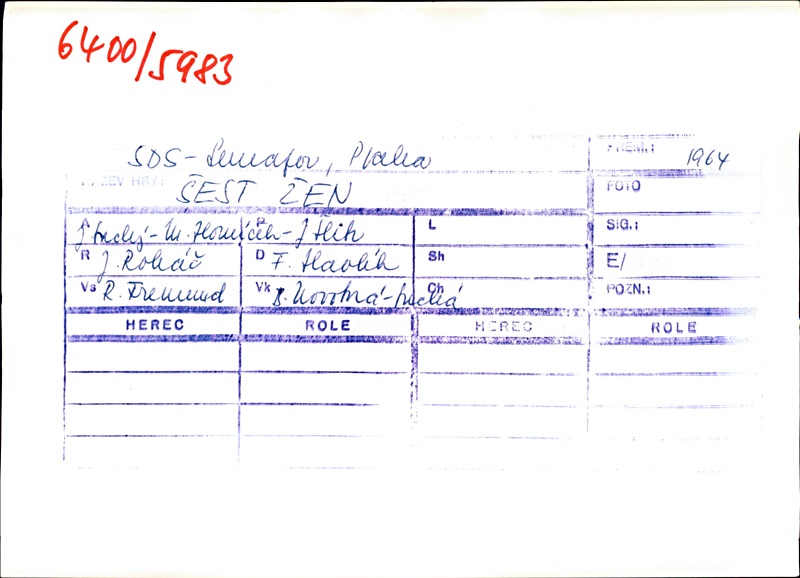 6400/5983
SDS - Semafor, Praha
PREM.: 1964
NÁZEV HRY: ŠEST ŽEN
FOTO
A J. Suchý - M. Horníček - J. Šlitr
L
SIG.:
R J. Roháč
D F. Havlík
Sh
E/
Vs R. Fremund
Vk B. Novotná-Suchá
Ch
POZN.:
HEREC ROLE HEREC ROLE